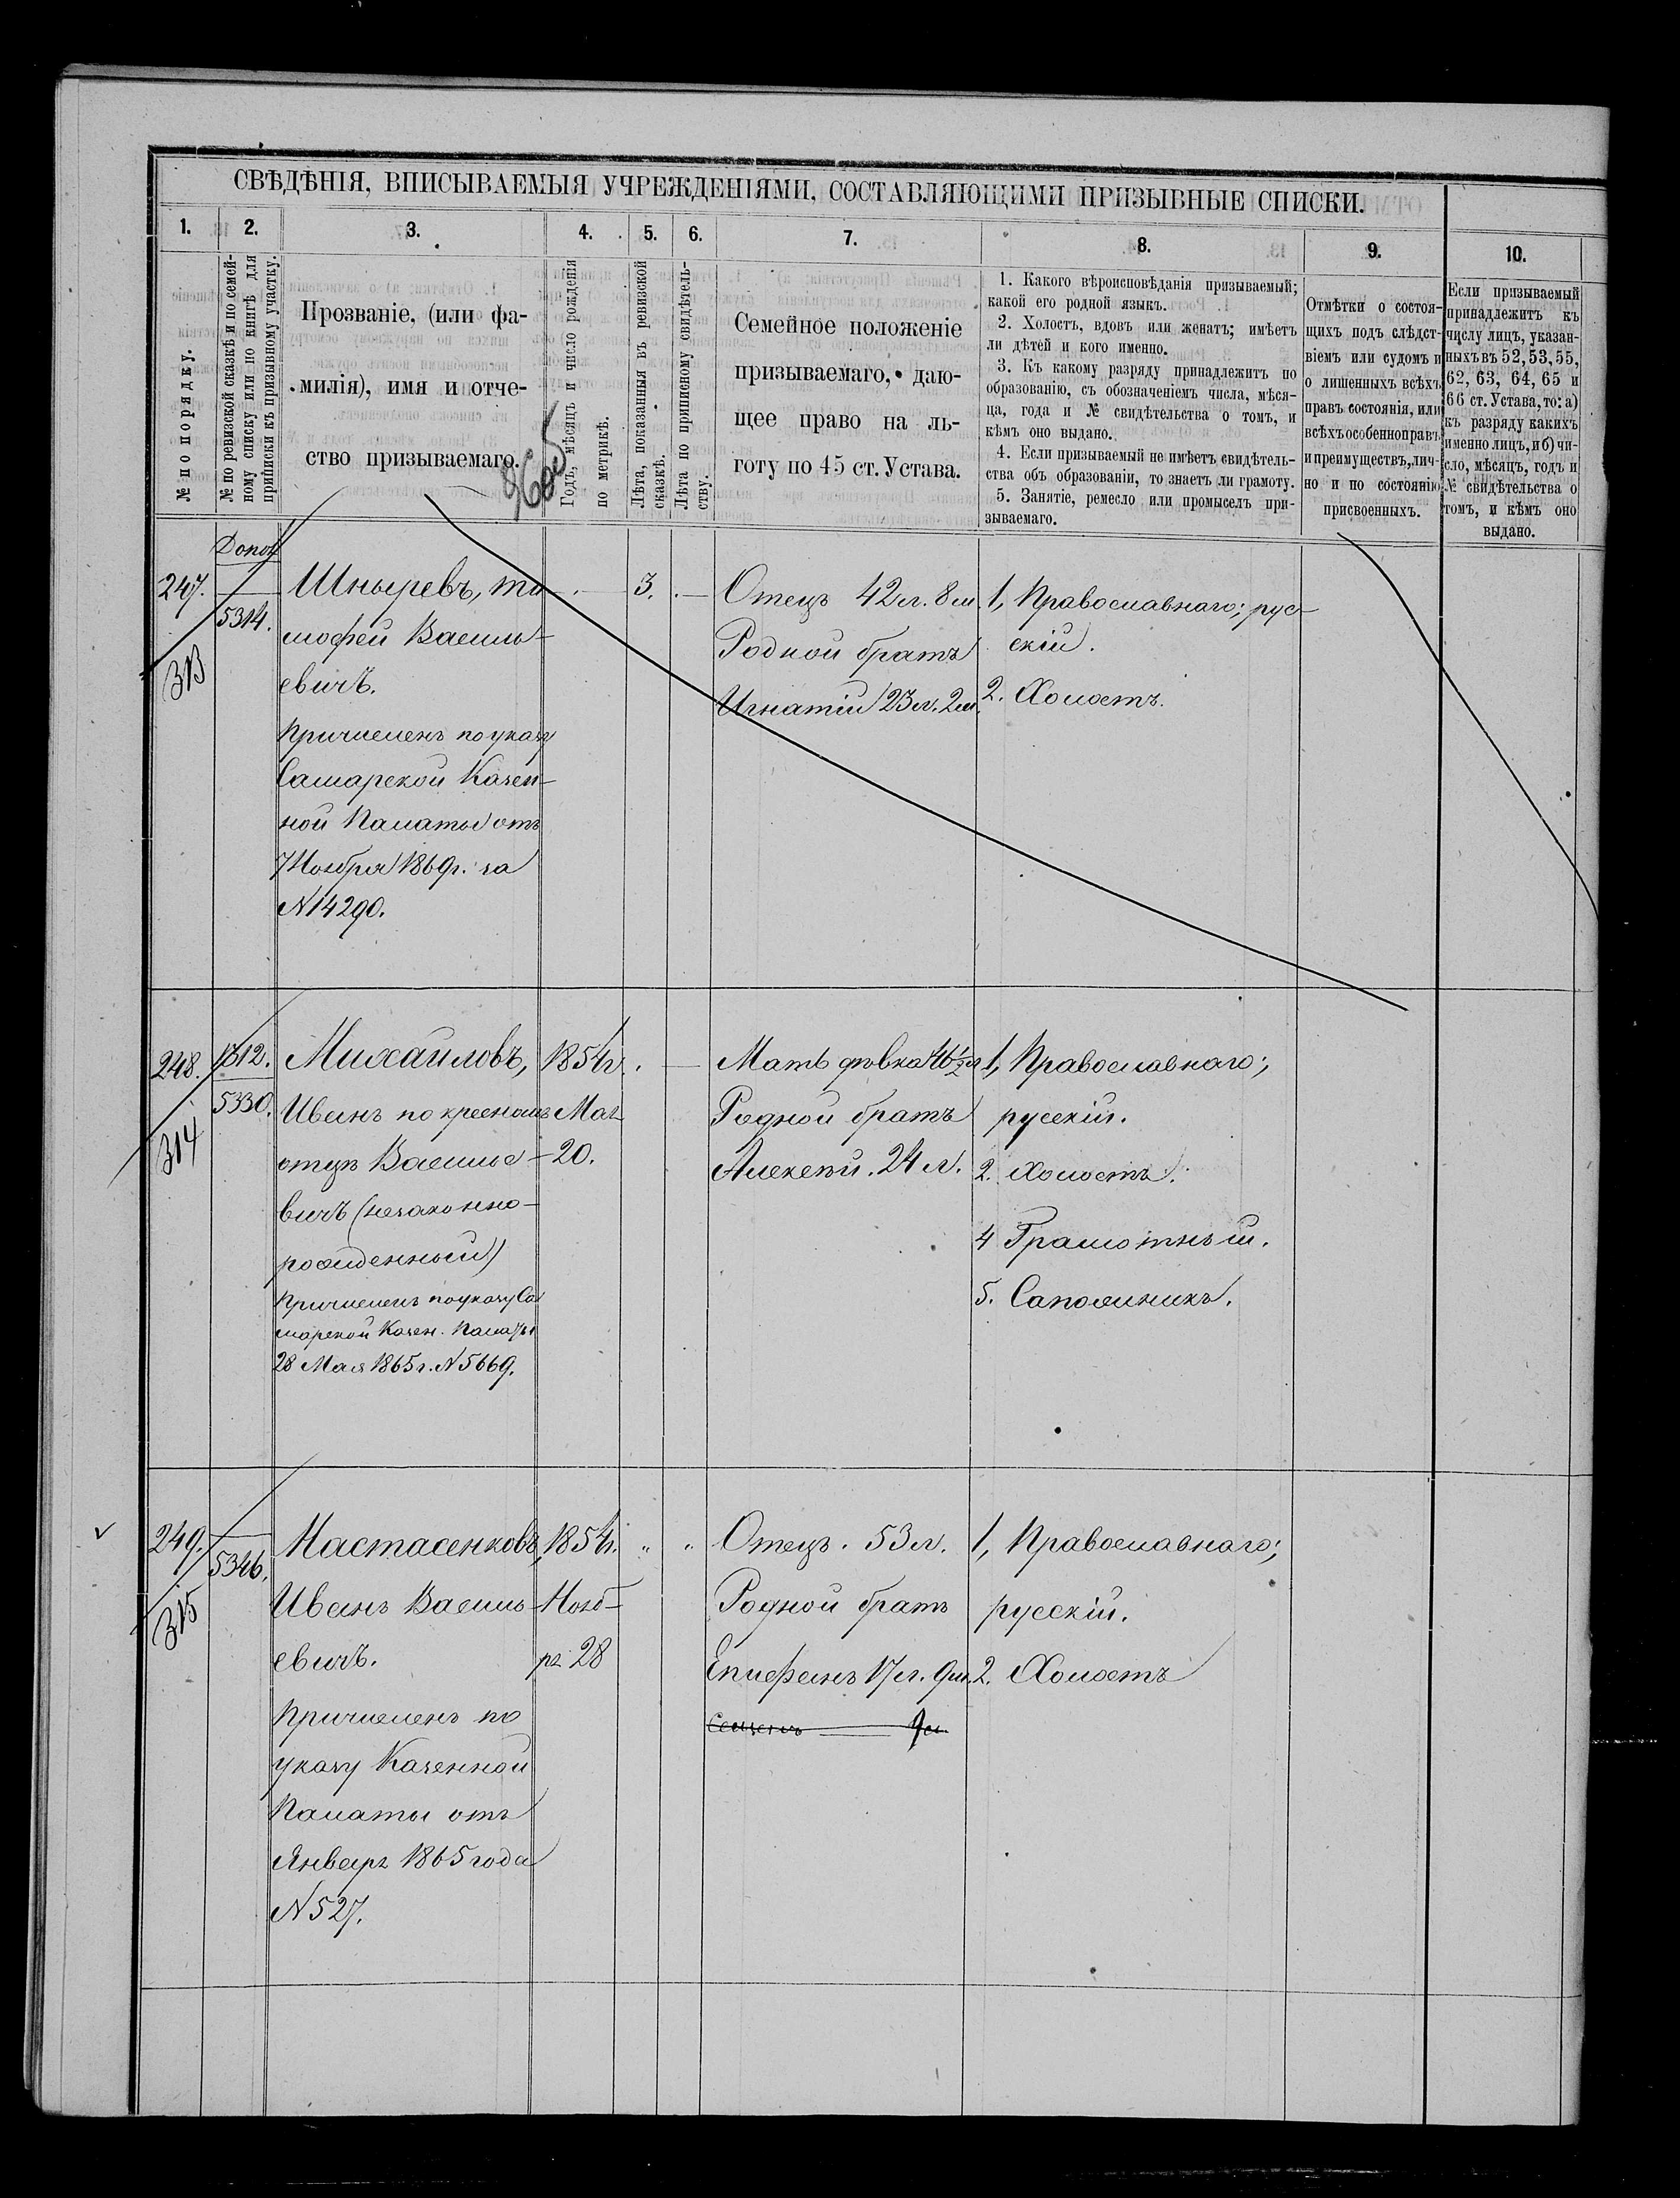 СВѢДѢНІЯ, ВПИСЫВАЕМЫЯ УЧРЕЖДЕНІЯМИ, СОСТАВЛЯЮЩИМИ ПРИЗЫВНЫЕ СПИСКИ.
1.
2.
3.
4.
5.
6.
7.
8.
9.
10.
№ по порядку.
№ по ревизской сказкѣ и по семей-
ному списку или по книгѣ для
приписки къ призывному участку.
Прозваніе, (или фа-
милія), имя и отче-
ство призываемаго.
Годъ, мѣсяцъ и число рожденія
по метрикѣ.
Лѣта, показанныя въ ревизской
сказкѣ.
Лѣта по приписному свидѣтель-
ству.
Семейное положеніе
призываемаго, даю-
щее право на ль-
готу по 45 ст. Устава.
1. Какого вѣроисповѣданія призываемый;
какой его родной языкъ.
2. Холостъ, вдовъ или женатъ; имѣетъ
ли дѣтей и кого именно.
3. Къ какому разряду принадлежитъ по
образованію, съ обозначеніемъ числа, мѣся-
ца, года и № свидѣтельства о томъ, и
кѣмъ оно выдано.
4. Если призываемый не имѣетъ свидѣтель-
ства объ образованіи, то знаетъ ли грамоту.
5. Занятіе, ремесло или промыселъ при-
зываемаго.
Отмѣтки о состоя-
щихъ подъ слѣдст-
віемъ или судомъ и
о лишенныхъ всѣхъ
правъ состоянія, или
всѣхъ особенно правъ
и преимуществъ, лич-
но и по состоянію
присвоенныхъ.
Если призываемый
принадлежитъ къ
числу лицъ, указан-
ныхъ въ 52, 53, 55,
62, 63, 64, 65 и
66 ст. Устава, то: а)
къ разряду какихъ
именно лицъ, и б) чи-
сло, мѣсяцъ, годъ и
№ свидѣтельства о
томъ, и кѣмъ оно
выдано.
247.
313
Допол
5314.
Шныревъ, Ти
мофей Василь-
евичъ.
Причисленъ по указу
Самарской Казен-
ной Палаты отъ
7 Ноября 1869г. за
N 14290.
3.
Отецъ 42 л. 8 м.
Родной братъ
Игнатій 23 л. 2 м.
1, Православнаго; рус-
скій.
2. Холостъ.
248.
314
1312.
5330.
Михайловъ,
Иванъ по крестном
отцѣ Василье-
вичъ (незаконно-
рожденный)
Причисленъ по указу Са
марской Казен. Палаты
28 Мая 1865 г. N 5669.
1854 г.
Мая
20.
Мать дѣвка 46 1/2 л
Родной братъ
Алексѣй. 24 л.
1, Православнаго;
русскій.
2. Холостъ.
4 Грамотный.
5. Сапожникъ.
249.
315
5346.
Настасенковъ,
Иванъ Василь-
евичъ.
Причисленъ по
указу Казенной
Палаты отъ
Января 1865 года
N 527.
1854 г.
Нояб-
ря 28
Отецъ. 53 л.
Родной братъ
Епифанъ 17 л. 9 м.
1, Православнаго;
русскій.
2. Холостъ